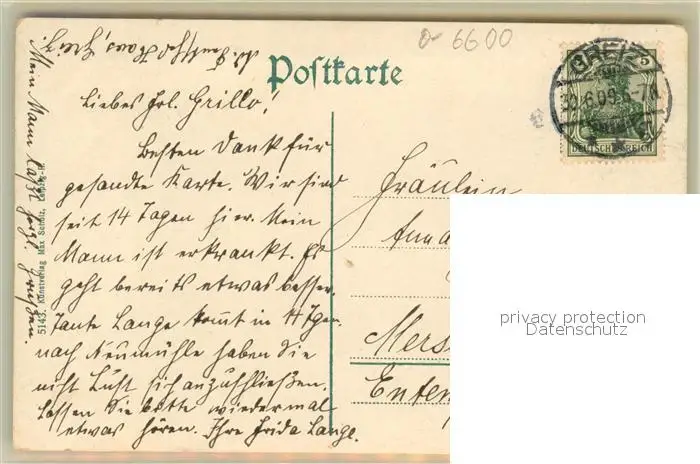 6600
Postkarte
GREIZ
5
DEUTSCHES REICH
Liebes Frl. Grillo!
Besten Dank für
gesandte Karte. Wir sind
seit 14 Tagen hier. Mein
Mann ist erkrankt. Es
geht bereits etwas besser.
Tante Lange kommt in 14 Tgen.
nach Neumühle haben Sie
nicht Lust sich anzuschließen.
Lassen Sie bitte wiedermal
etwas hören. Ihre Frida Lange.
Mein Mann läßt herzl. grüßen.
5143. Kunstverlag Max Scholz, Leipzig-R.
Fräulein
Anna
Mers
Enten
privacy protection
Datenschutz